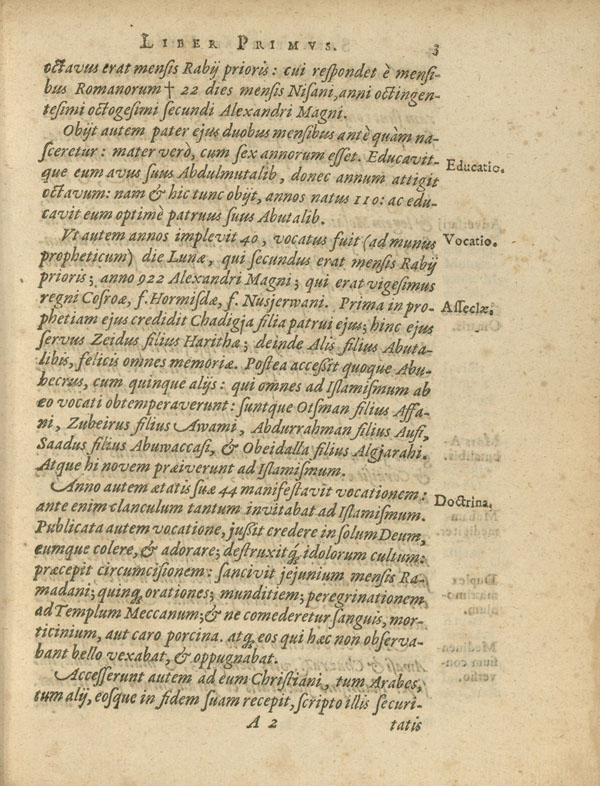 LIBER PRIMVS. 3
octavus erat mensis Rabij prioris: cui respondet è mensi-
bus Romanorum † 22 dies mensis Nisani, anni octingen-
tesimi octogesimi secundi Alexandri Magni.
Obijt autem pater ejus duobus mensibus antè quàm na-
sceretur: mater verò, cum sex annorum esset. Educavit-
que eum avus suus Abdulmutalib, donec annum attigit
Educatio.
octavum: nam & hic tunc obijt, annos natus 110: ac edu-
cavit eum optimè patruus suus Abutalib.
Vt autem annos implevit 40, vocatus fuit (ad munus
Vocatio.
propheticum) die Lunæ, qui secundus erat mensis Rabij
prioris; anno 922 Alexandri Magni; qui erat vigesimus
regni Cosroæ, f. Hormisdæ, f. Nusjerwani. Prima in pro-
Asseclæ.
phetiam ejus credidit Chadigja filia patrui ejus; hinc ejus
servus Zeidus filius Harithæ; deinde Alis filius Abuta-
libis, felicis omnes memoriæ. Postea accessit quoque Abu-
becrus, cum quinque alijs: qui omnes ad Islamismum ab
eo vocati obtemperaverunt: suntque Otsman filius Affa-
ni, Zubeirus filius Awami, Abdurrahman filius Aufi,
Saadus filius Abuwaccasi, & Obeidalla filius Algjarahi.
Atque hi novem præiverunt ad Islamismum.
Anno autem ætatis suæ 44 manifestavit vocationem:
Doctrina.
ante enim clanculum tantum invitabat ad Islamismum.
Publicata autem vocatione, jussit credere in solum Deum,
eumque colere, & adorare; destruxitq; idolorum cultum:
præcepit circumcisionem: sancivit jejunium mensis Ra-
madani; quinq; orationes; munditiem; peregrinationem
ad Templum Meccanum; & ne comederetur sanguis, mor-
ticinium, aut caro porcina. atq; eos qui hæc non observa-
bant bello vexabat, & oppugnabat.
Accesserunt autem ad eum Christiani, tum Arabes,
tum alij, eosque in fidem suam recepit, scripto illis securi-
A 2 tatis